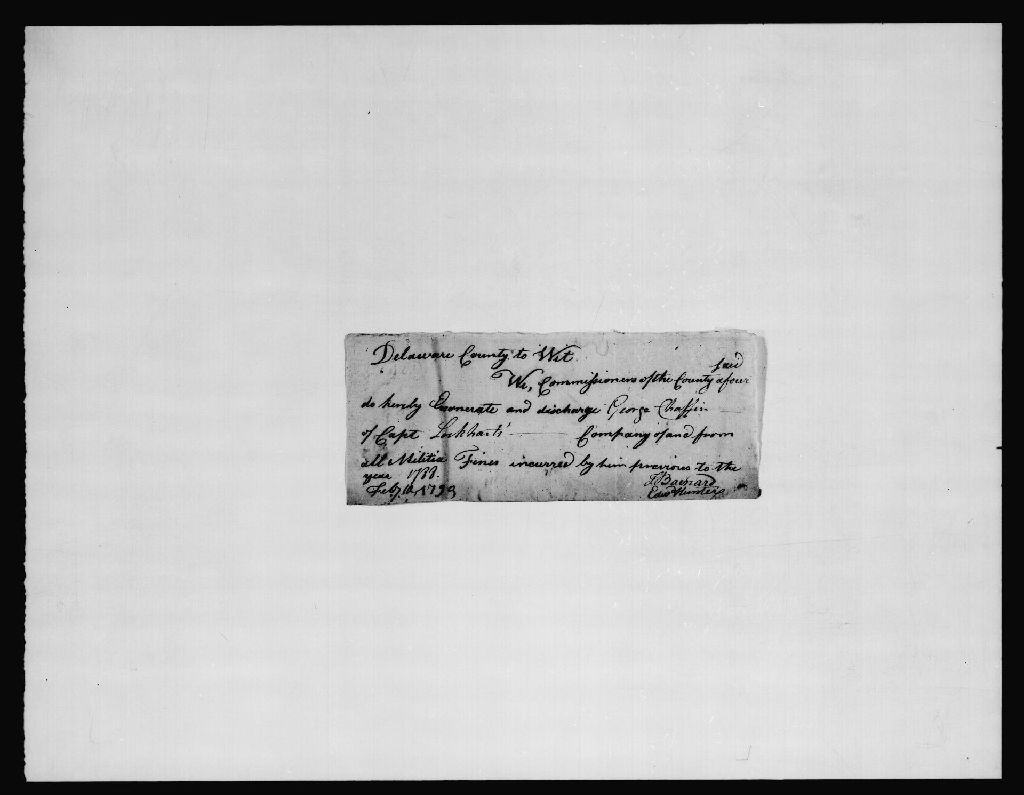 Delaware County to Wit
said
We, Commissioners of the County afore
do hereby Exonerate and discharge George Chaffin
of Capt Lockharts' Company of and from
all Militia Fines incurred by him previous to the
year 1788.
Feby 1793 Barnard
Edwd Hunter